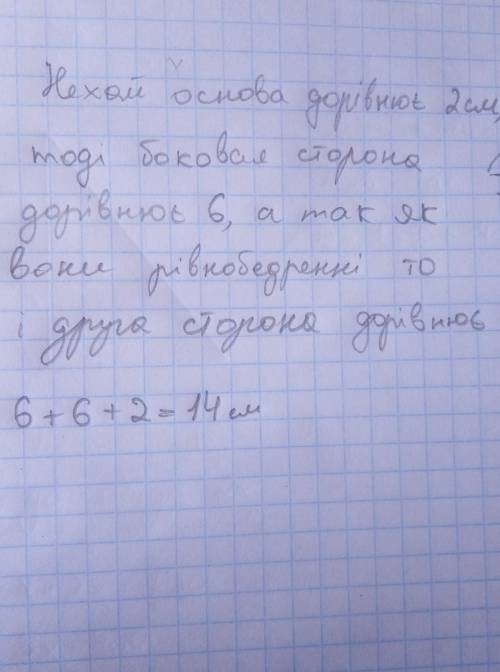 Нехай основа дорівнює 2см,
тоді боковая сторона
дорівнює 6, а так як
вони рівнобедренні то
і друга сторона дорівнює
6 + 6 + 2 = 14 см